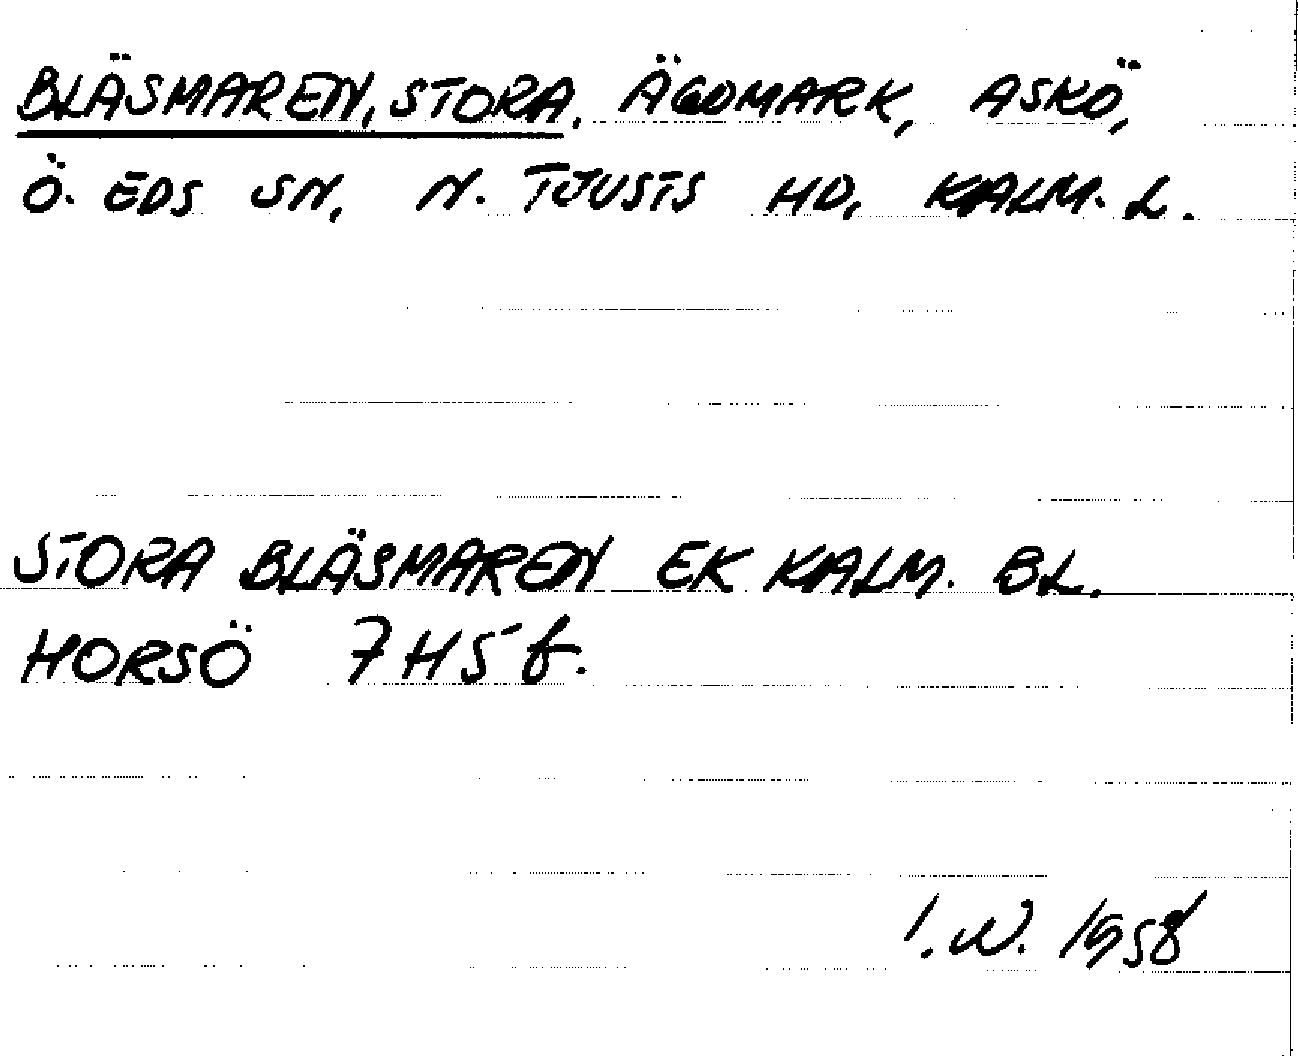 BLÄSMAREN, STORA, ÄGOMARK, ASKÖ,
Ö. EDS SN, N. TJUSTS HD, KALM. L.
STORA BLÄSMAREN EK KALM. BL.
HORSÖ 7H5f.
I.W. 1958